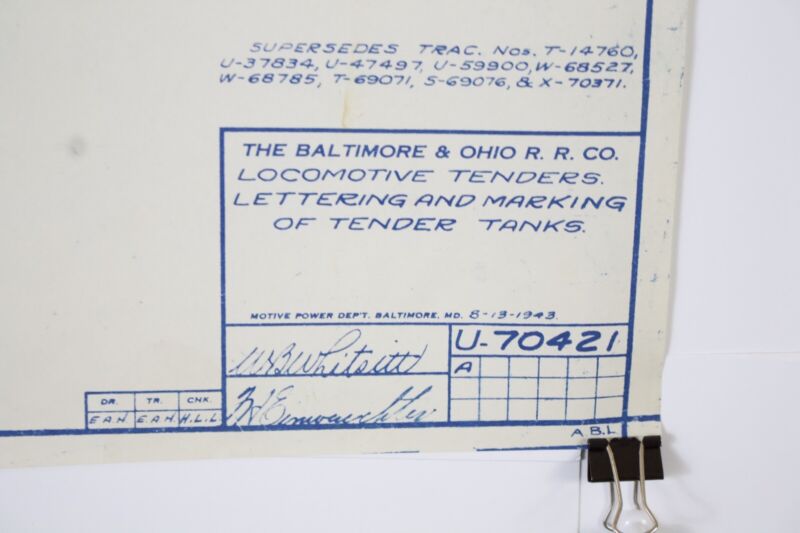 SUPERSEDES TRAC. NOS. T-14760,
U-37834, U-47497, U-59900, W-68527,
W-68785, T-69071, S-69076, & X-70371.
THE BALTIMORE & OHIO R. R. CO.
LOCOMOTIVE TENDERS.
LETTERING AND MARKING
OF TENDER TANKS.
MOTIVE POWER DEP'T. BALTIMORE, MD. 8-13-1943.
W B Whitsitt
U-70421
A
DR. TR. CHK.
E A H E A H H. L. L
A B.L